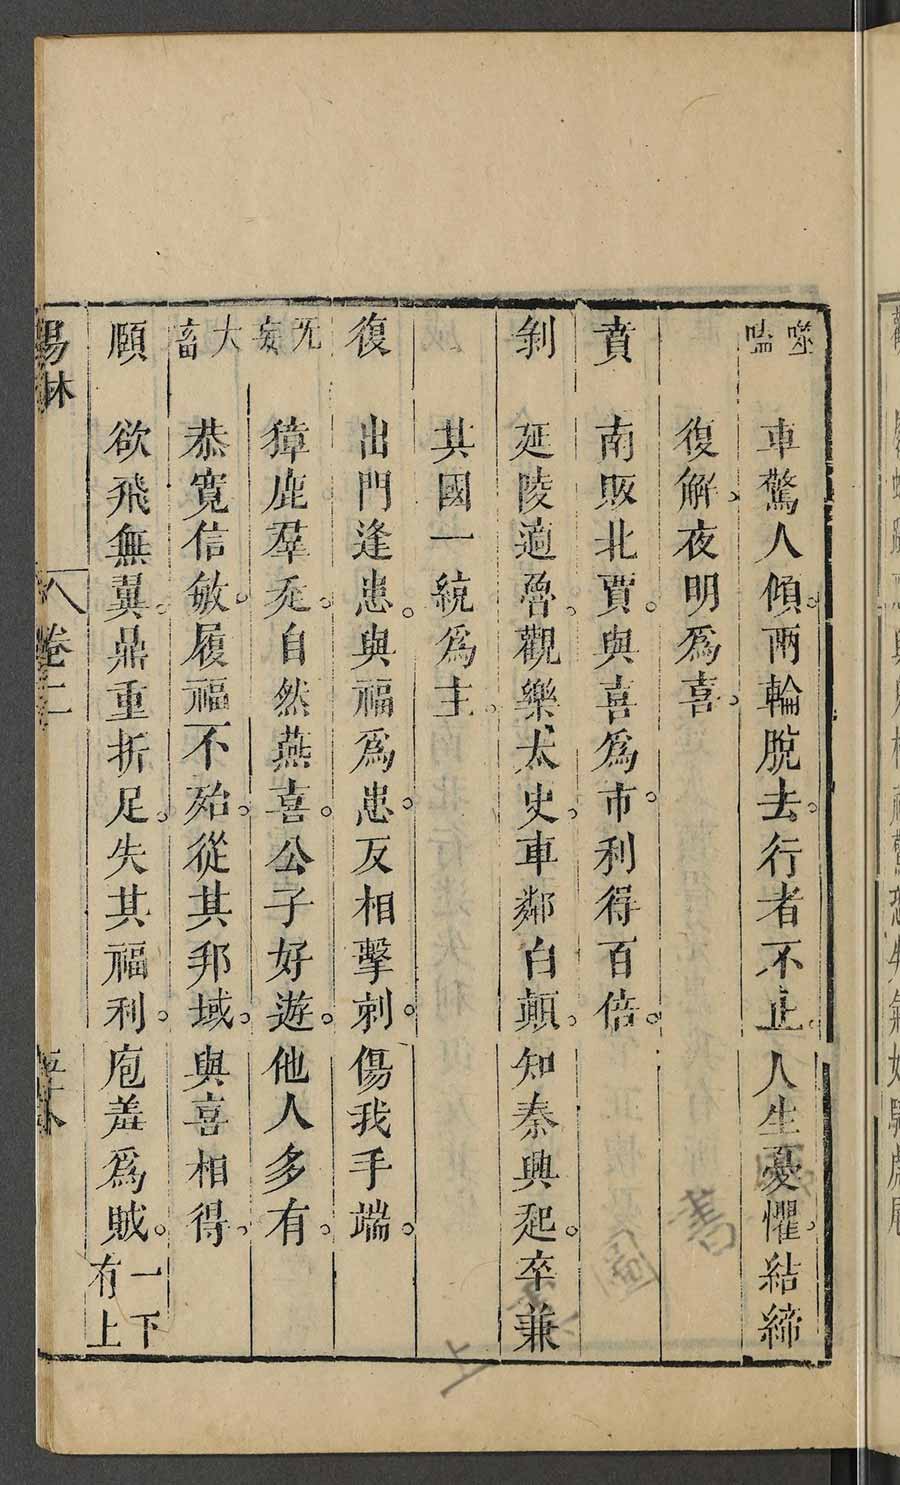 噬嗑 車驚人傾。兩輪脫去。行者不止。人生憂懼。結締
復解、夜明爲喜。
賁 南販北賈。與喜爲市。利得百倍。
剝 延陵適魯。觀樂太史。車鄰白顛。知秦興起。卒兼
其國一統爲主。
復 出門逢患。與福爲患。反相擊刺。傷我手端。
无妄 獐鹿羣走。自然燕喜。公子好遊。他人多有。
大畜 恭寬信敏。履福不殆。從其邦域。與喜相得。
頤 欲飛無翼。鼎重折足。失其福利。庖羞爲賊。一下有上
易林 卷二